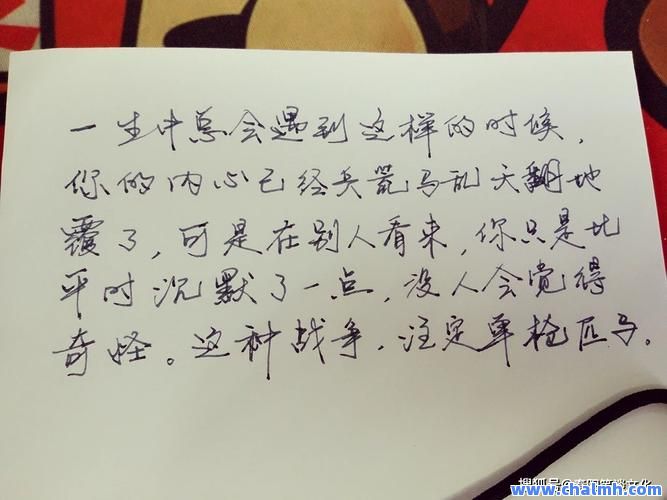 一生中总会遇到这样的时候，
你的内心已经兵荒马乱天翻地
覆了，可是在别人看来，你只是比
平时沉默了一点，没人会觉得
奇怪。这种战争，注定单枪匹马。
搜狐号@
www.chalmh.com